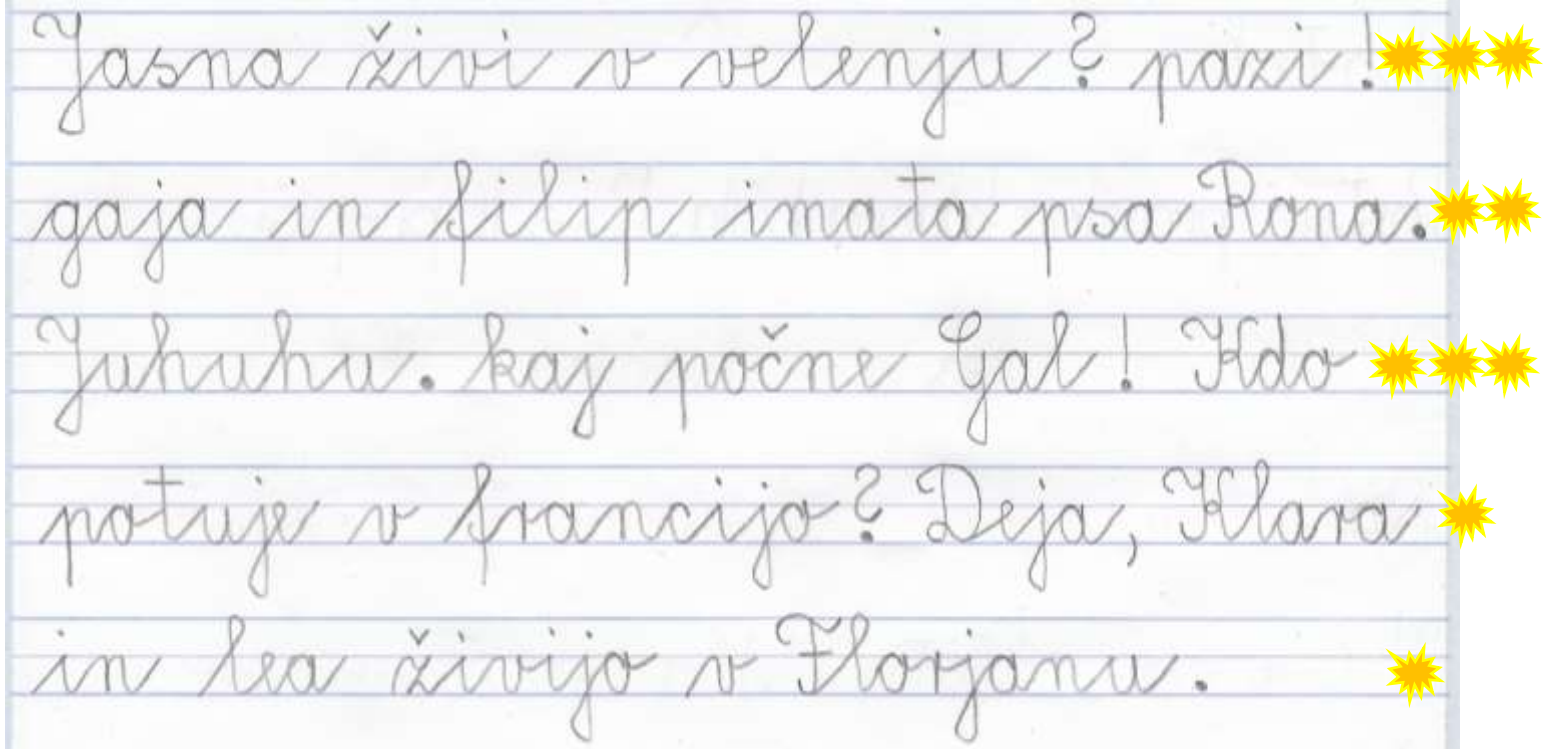 Jasna živi v velenju? pazi!
gaja in filip imata psa Rona.
Juhuhu. kaj počne Gal! Kdo
potuje v francijo? Deja, Klara
in lea živijo v Florjanu.